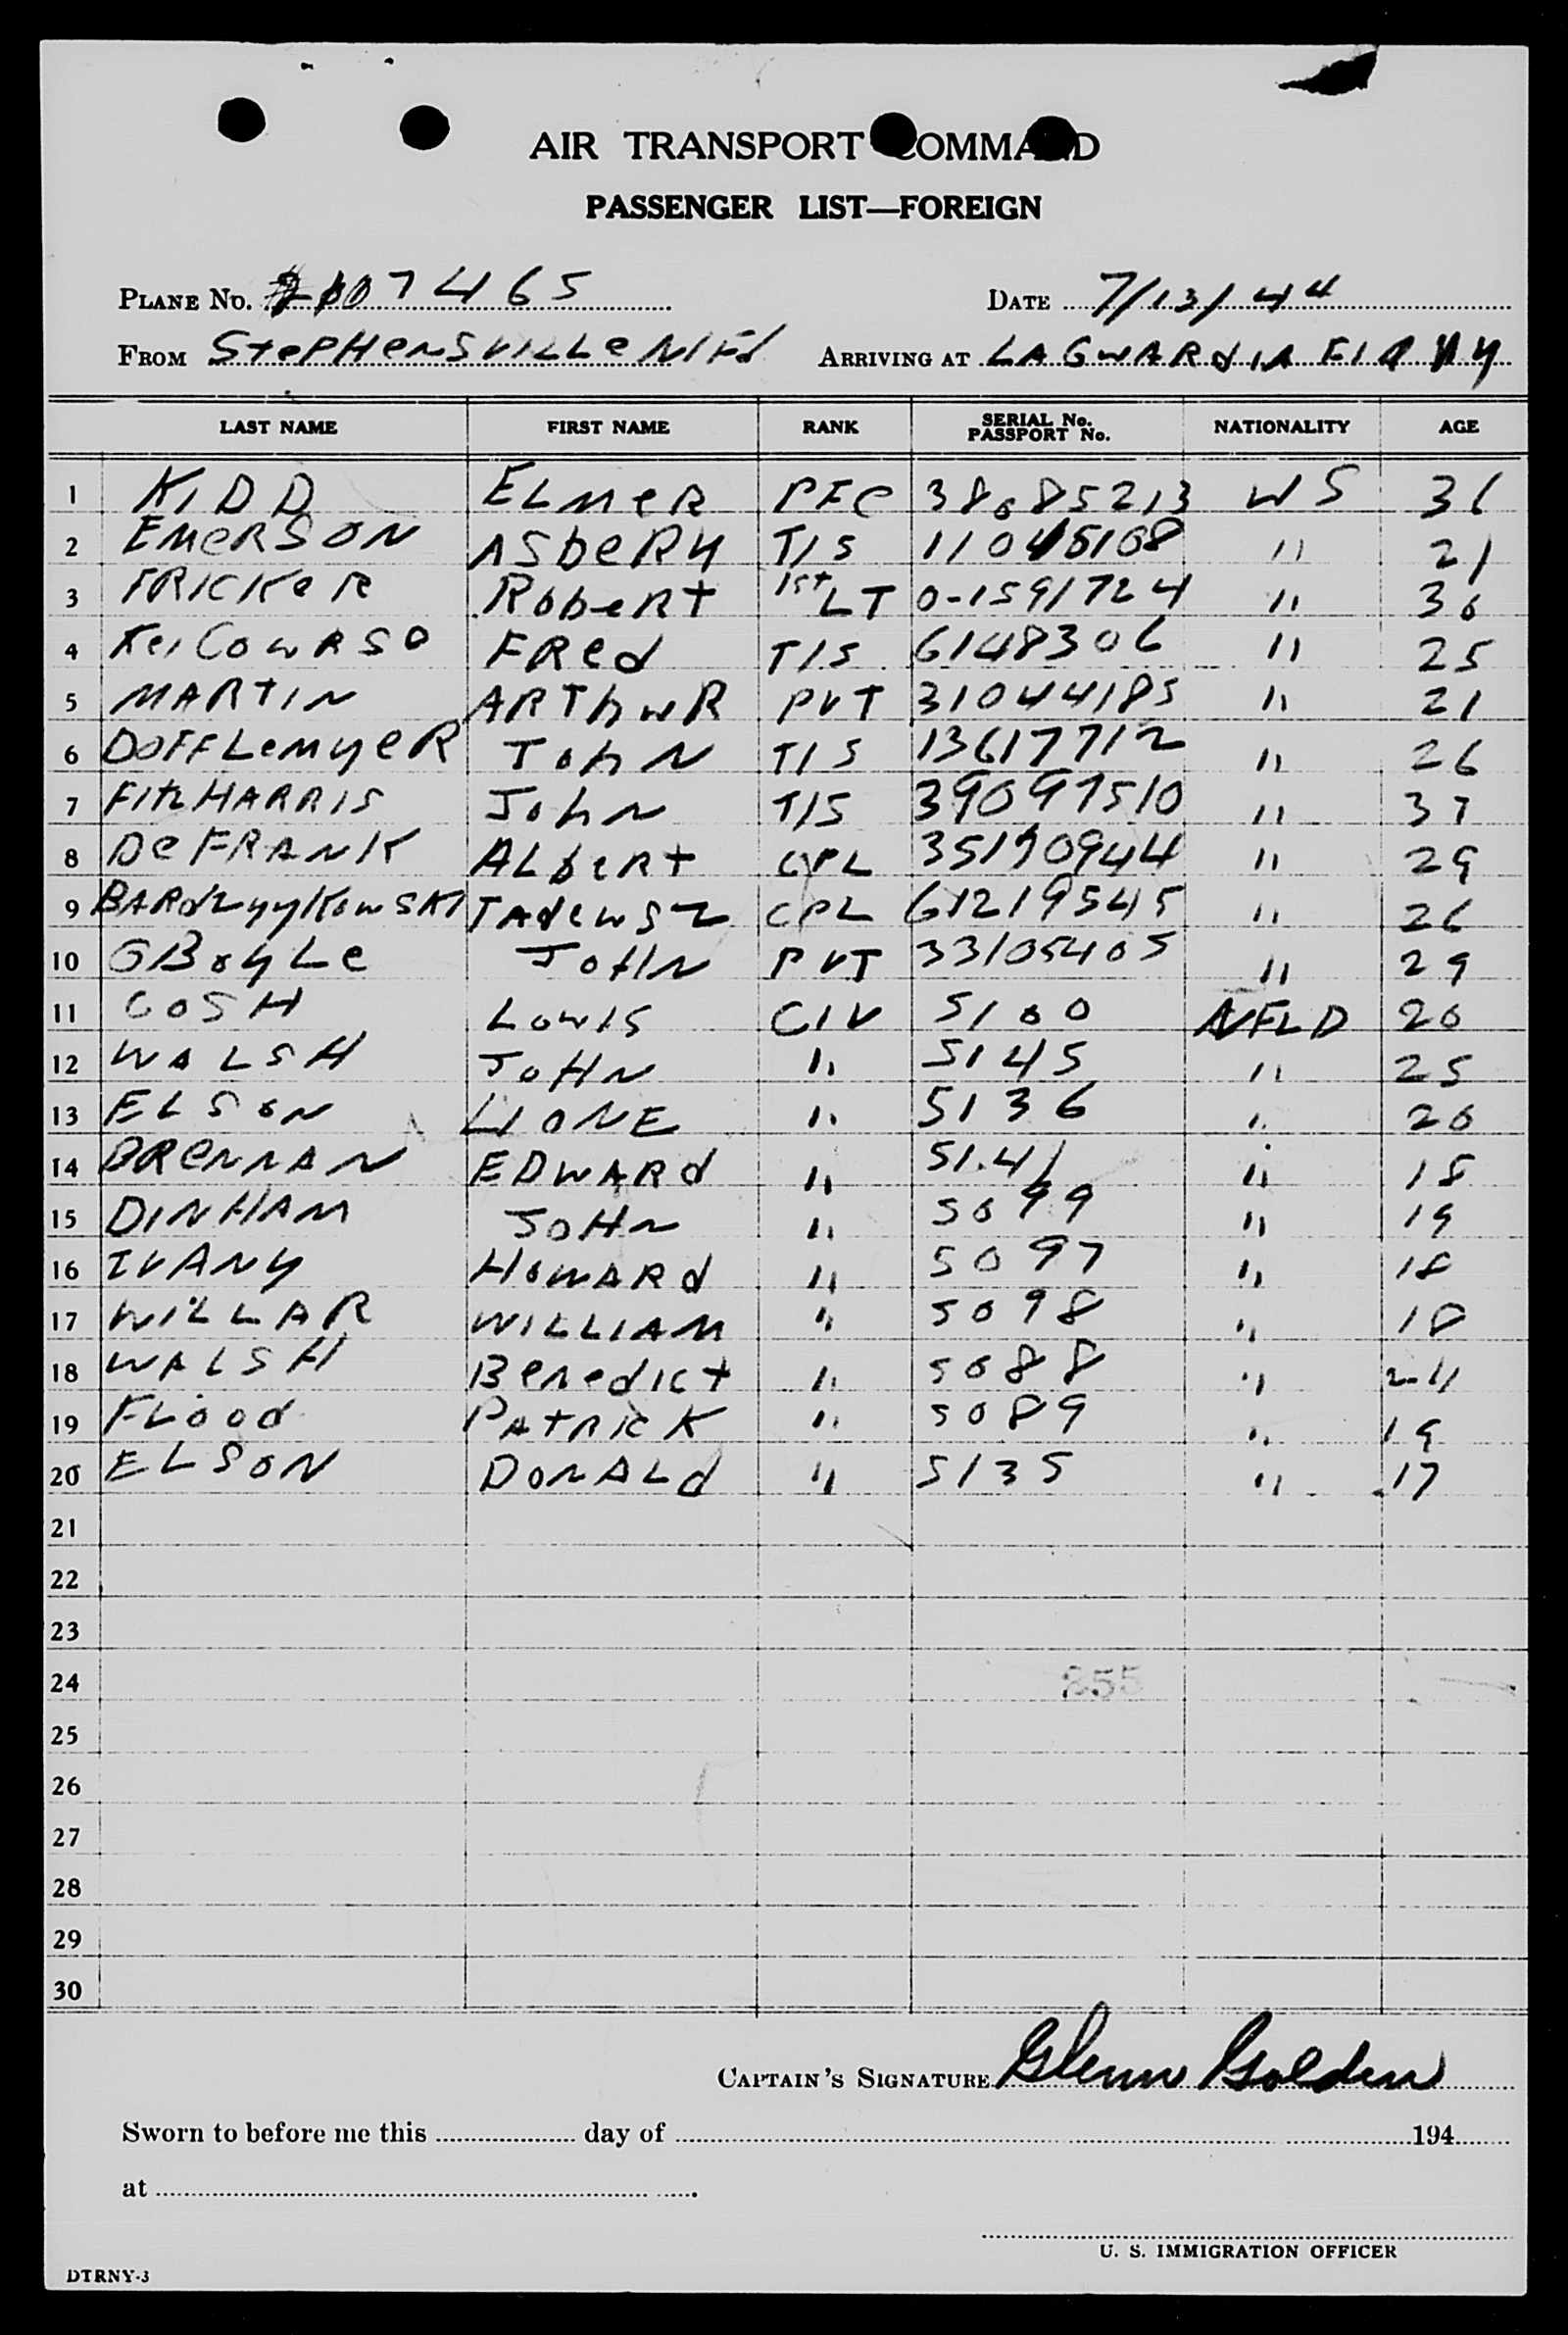 AIR TRANSPORT COMMAND
PASSENGER LIST—FOREIGN
PLANE No. 2107465 DATE 7/13/44
FROM StePHenSVILLe N/Fd ARRIVING AT LAGUARdIA FLD NY
LAST NAME FIRST NAME RANK SERIAL No. PASSPORT No. NATIONALITY AGE
1 KIDD ELMeR PFC 38085213 US 36
2 EMeRSON ASbeRy T/5 11045108 " 21
3 FRICKeR RobeRt 1st LT 0-1591724 " 30
4 FRed T/5 6148306 " 25
5 MARtIN ARThuR PVT 31044185 " 21
6 DOFFLeMyeR JohN T/5 13617712 " 26
7 FItzHARRIS JohN T/5 39097510 " 37
8 DeFRANK ALbeRt CPL 35190944 " 29
9 BARdzyyKowSKI TAdeuSz CPL 61219545 " 26
10 OBoyLe JOHN PVT 33105405 " 29
11 COSH LouIS CIV 5100 NFLD 20
12 WALSH JOHN " 5145 " 25
13 ELSON LIONE " 5136 " 20
14 BReNNAN EDWARd " 5141 " 18
15 DINHAM JOHN " 5099 " 19
16 IVANy HOWARd " 5097 " 18
17 WILLAR WILLIAM " 5098 " 18
18 WALSH BeNedIct " 5088 " 24
19 FLOOd PAtRICK " 5089 " 19
20 ELSON DONALd " 5135 " 17
21
22
23
24 255
25
26
27
28
29
30
CAPTAIN'S SIGNATURE Glenn Golden
Sworn to before me this day of 194
at
U. S. IMMIGRATION OFFICER
DTRNY-3